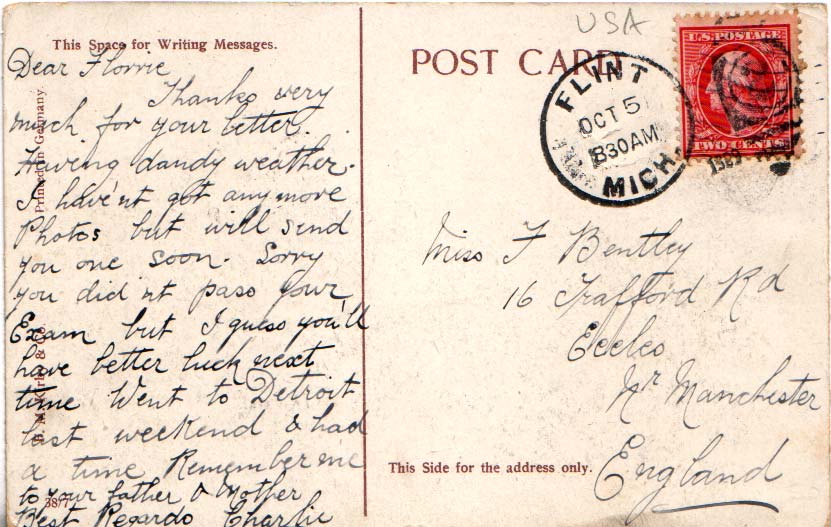 This Space for Writing Messages.
Dear Florrie
Thanks very
much for your letter.
Having dandy weather.
I have'nt got any more
Photos but will send
you one soon. Sorry
you did'nt pass your
Exam but I guess you'll
have better luck next
time Went to Detroit
last weekend & had
a time Remember me
to your father & Mother
Best Regards Charlie
Printed in Germany
38/7
USA
POST CARD
FLINT
OCT 5
830AM
MICH.
U.S. POSTAGE
TWO CENTS
Miss F Bentley
16 Trafford Rd
Eccles
Nr Manchester
England
This Side for the address only.